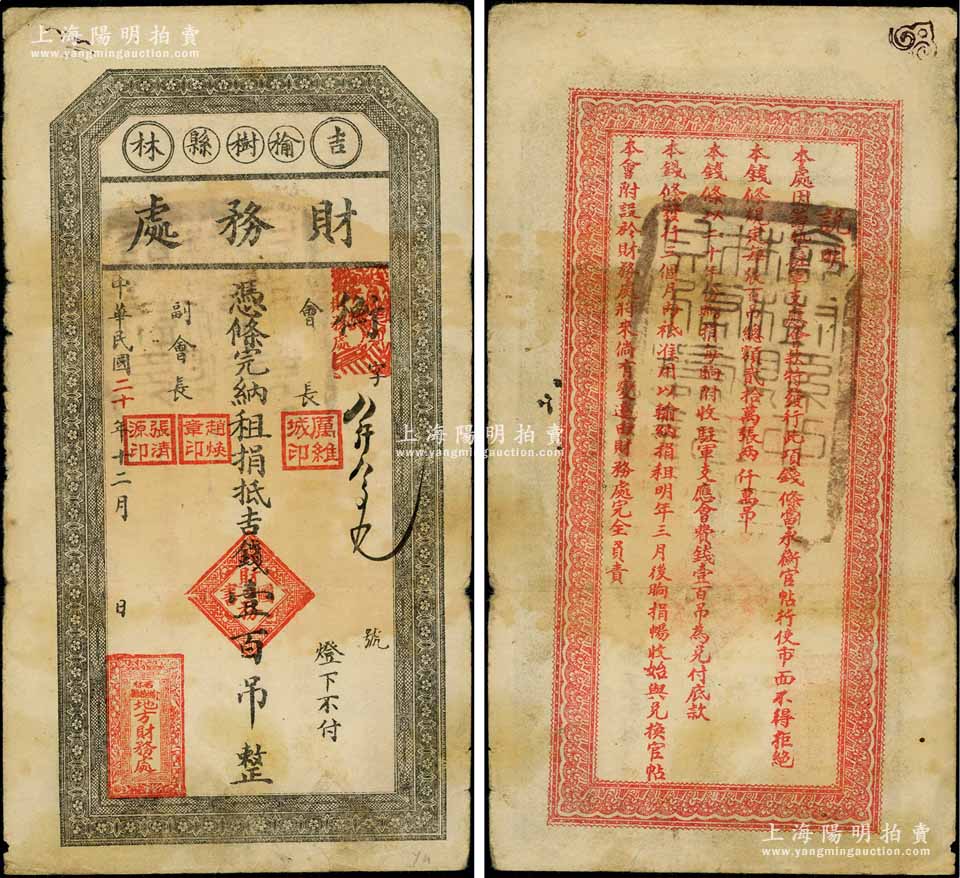 上海陽明拍賣
www.yangmingauction.com
吉林
榆樹縣
財務處
會長
字
號
燈下不付
憑條完納租捐抵吉錢壹百吊整
副會長
中華民國二十年十二月 日
厲維城印
趙煥章印
張清源印
地方財務處
上海陽明拍賣
www.yangmingauction.com
上海陽明拍賣
www.yangmingauction.com
說明
發行此項錢條當永衡官帖行使市面不得拒絕
本錢條規定每張百吊總額貳拾萬張兩仟萬吊
附收駐軍支應會費錢壹百吊為兌付底款
本錢條發行三個月內祗准用以輸納捐租明年三月後晌捐暢收始與兌換官帖
本會附設於財務處將來倘有變遷由財務處完全負責
上海陽明拍賣
www.yangmingauction.com